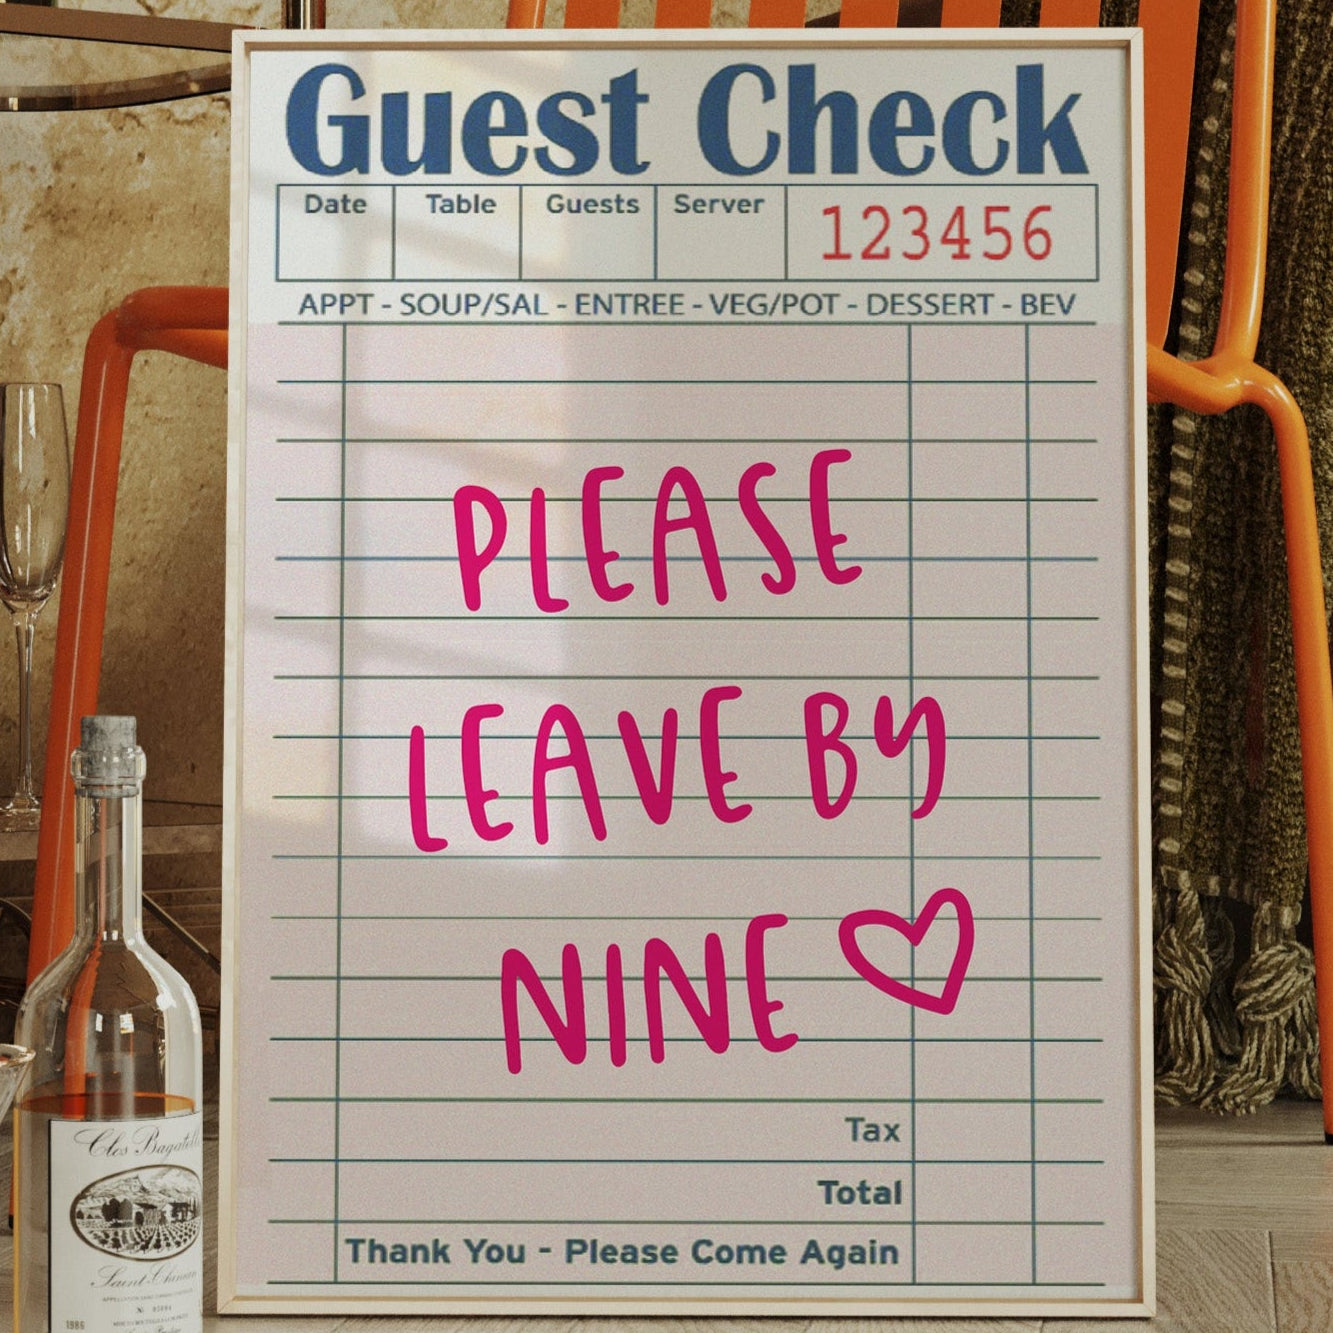 Guest Check
Date Table Guests Server 123456
APPT - SOUP/SAL - ENTREE - VEG/POT - DESSERT - BEV
PLEASE
LEAVE BY
NINE
Tax
Total
Thank You - Please Come Again
Clos
1986